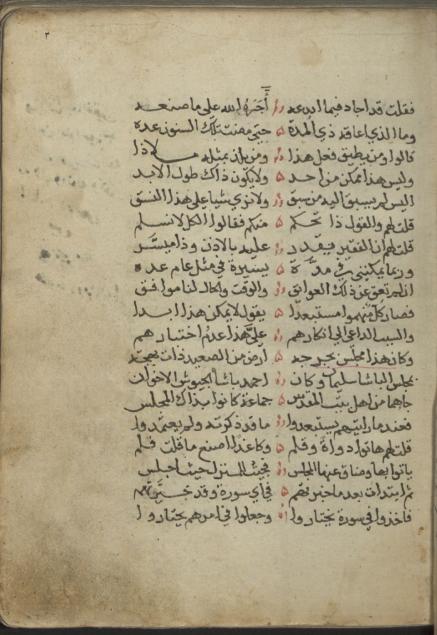 ٢
فقلت قد اجاد فيما ابدعه ۵ أجره الله على ما صنعه
وما الذي اعاقه ذي المدة ۵ حتى مضت تلك السنون عده
قالوا ومن يطيق فعل هذا ۵ ومن بمثله
وليس هذا ممكن من احد ۵ ولا يكون ذاك طول الابد
اليس لم يسبق اليه من سبق ۵ ولا نرى شيا على هذا النسق
قلت لهم والقول ذا منكم ۵ فقالوا الكل لا نسلم
قلت لهم ان الفقير يقدر ۵ عليه بالاذن وذا ميسر
وربما يكفيني في مدة ۵ يسيرة في مثل عام عده
ان لم تعق عن ذلك العوايق ۵ والوقت والحال لنا موافق
فصار كل منهموا مستبعدا ۵ يقول لا يمكن هذا ابدا
والسبب الداعي الى انكارهم ۵ على هذا عدم اختبارهم
وكان هذا مجلس ۵ ارض من الصعيد ذات
مجلس الباشا سليمان وكان ۵ احمد باشا بجيوش الاخوان
جاهما من اهل بيت المقدس ۵ جماعة كانوا بذاك المجلس
فعندما رايتهم يستبعدوا ۵ ما قد ذكرته ولم يعتمدوا
قلت لهم هاتوا دواة وقلم ۵ وكاغدا اصنع ما قلت فلم
ياتوا بها وضاق عنها المجلس ۵ فجيت للمنزل حيث اجلس
ثم ابتدات بعد ما خيرتهم ۵ في اي سورة وقد خيرتهم
فاخذوا في سورة يختاروا ۵ وجعلوا في امرهم يحتاروا